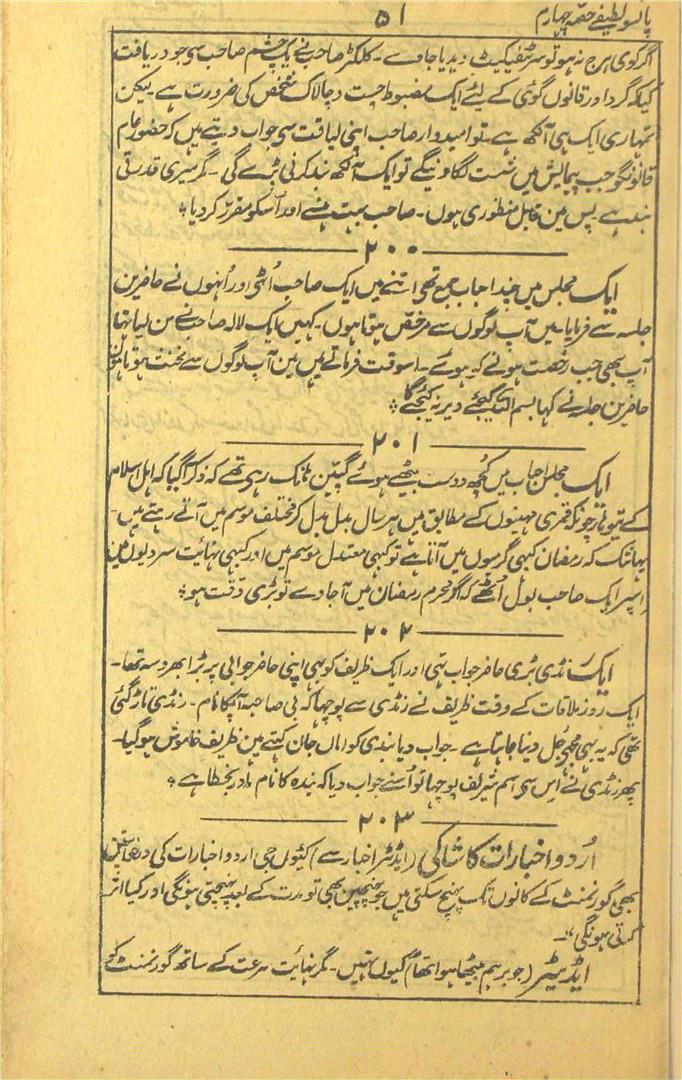 پانسو لطیفے حصہ چہارم
۵۱
اگر کوئی ہرج نہ ہو تو سرٹیفیکیٹ دیدیا جاوے ۔ کلکٹر صاحب نے یک چشم صاحب سی جو دریافت
کیا کہ گرداور قانون گوئی کے لئے ایک مضبوط چست و چالاک شخص کی ضرورت ہے ۔ لیکن
تمہاری ایک ہی آنکھ ہے ۔ تو امیدوار صاحب اپنی لیاقت سی جواب دیتے ہیں کہ حضور عام
قانونگو جب پیمائش میں شست لگاوینگے تو ایک آنکھ بند کرنی پڑے گی ۔ مگر میری قدرتی
بند ہے ۔ پس مین قابل منظوری ہوں ۔ صاحب بہت ہنسے اور اسکو مقرر کر دیا ؞
۲۰۰
ایک مجلس میں چند احباب جمع تھی اتنے میں ایک صاحب اُٹھی اور اُنہوں نے حاضرین
جلسہ سے فرمایا ۔ میں آپ لوگوں سے مرخص ہوتا ہوں ۔ کہیں ایک لالہ صاحب نے سن لیا تھا
آپ بھی جب رخصت ہونے کو ہوئے ۔ اسوقت فرماتے ہیں مین آپ لوگوں سے مخنث ہوتا ہوں
حاضرین جلسہ نے کہا بسم اللہ کیجئے دیر نہ کیجئے گا ؞
۲۰۱
ایک مجلس احباب میں کچھ دوست بیٹھے ہوئے گپین ہانک رہی تھے کہ ذکر آگیا کہ اہل اسلام
کے تیوہار چونکہ قمری مہینوں کے مطابق میں ہر سال بدل بدل کر مختلف موسم میں آتے رہتے ہیں ۔
یہانتک کہ رمضان کبھی گرمیوں میں آتا ہے تو کبھی معتدل موسم میں اور کبھی نہائیت سردیوں مین
اسپر ایک صاحب بول اُٹھے کہ اگر محرم رمضان میں آجاوے تو بڑی دقت ہو ؞
۲۰۲
ایک رنڈی بڑی حاضر جواب تہی اور ایک ظریف کو بہی اپنی حاضر جوابی پر بڑا بھروسہ تھا ۔
ایک روز ملاقات کے وقت ظریف نے رنڈی سے پوچہا کہ بی صاحبہ آپکا نام ۔ رنڈی تاڑ گئی
تھی کہ یہ بہی مجہی جُل دینا چاہتا ہے ۔ جواب دیا بندی کو اماں جان کہتے مین ظریف خاموش ہو گیا ۔
پھر رنڈی نے اس سی اسم شریف پوچہا تو اُسنے جواب دیا کہ بندہ کا نام مادر بخطا ہے ؞
۲۰۳
اُردو اخبارات کا شاکی (ایڈیٹر اخبار سے) کیوں جی اردو اخبارات کی درخواستیں
بھی گورنمنٹ کے کانوں تک پہنچ سکتی ہیں جو پہنچیں بھی تو مدت کے بعد پہنچتی ہونگی اور کیا اثر
کرتی ہونگی ۔
ایڈیٹر (جو برہم بیٹھا ہوا تھا) کیوں نہیں ۔ مگر نہایت سرعت کے ساتھ گورنمنٹ کے